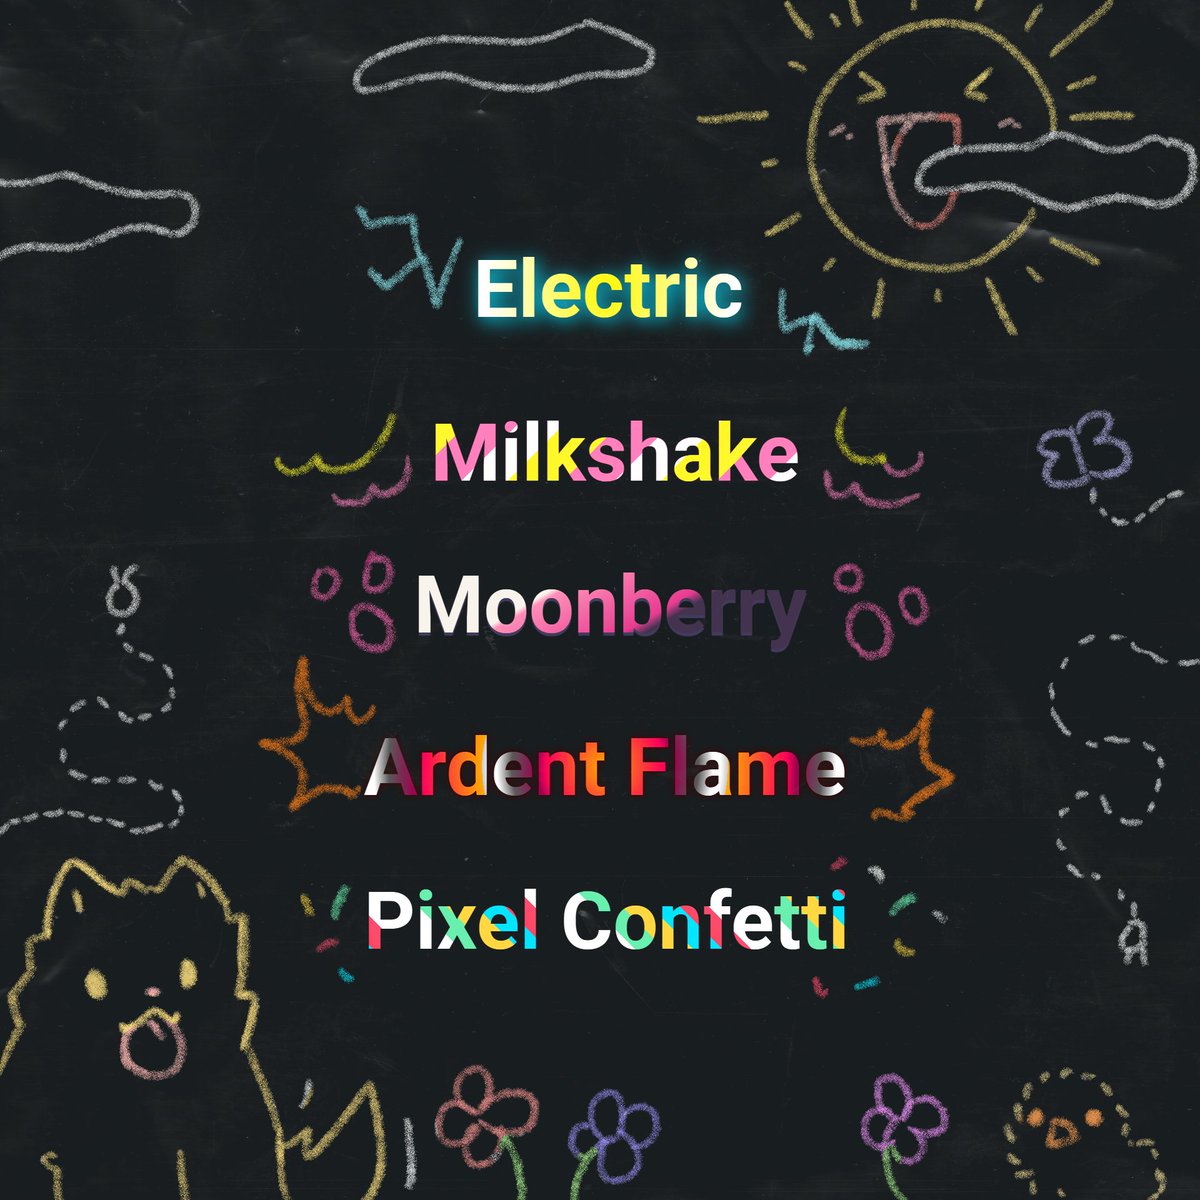 Electric
Milkshake
Moonberry
Ardent Flame
Pixel Confetti